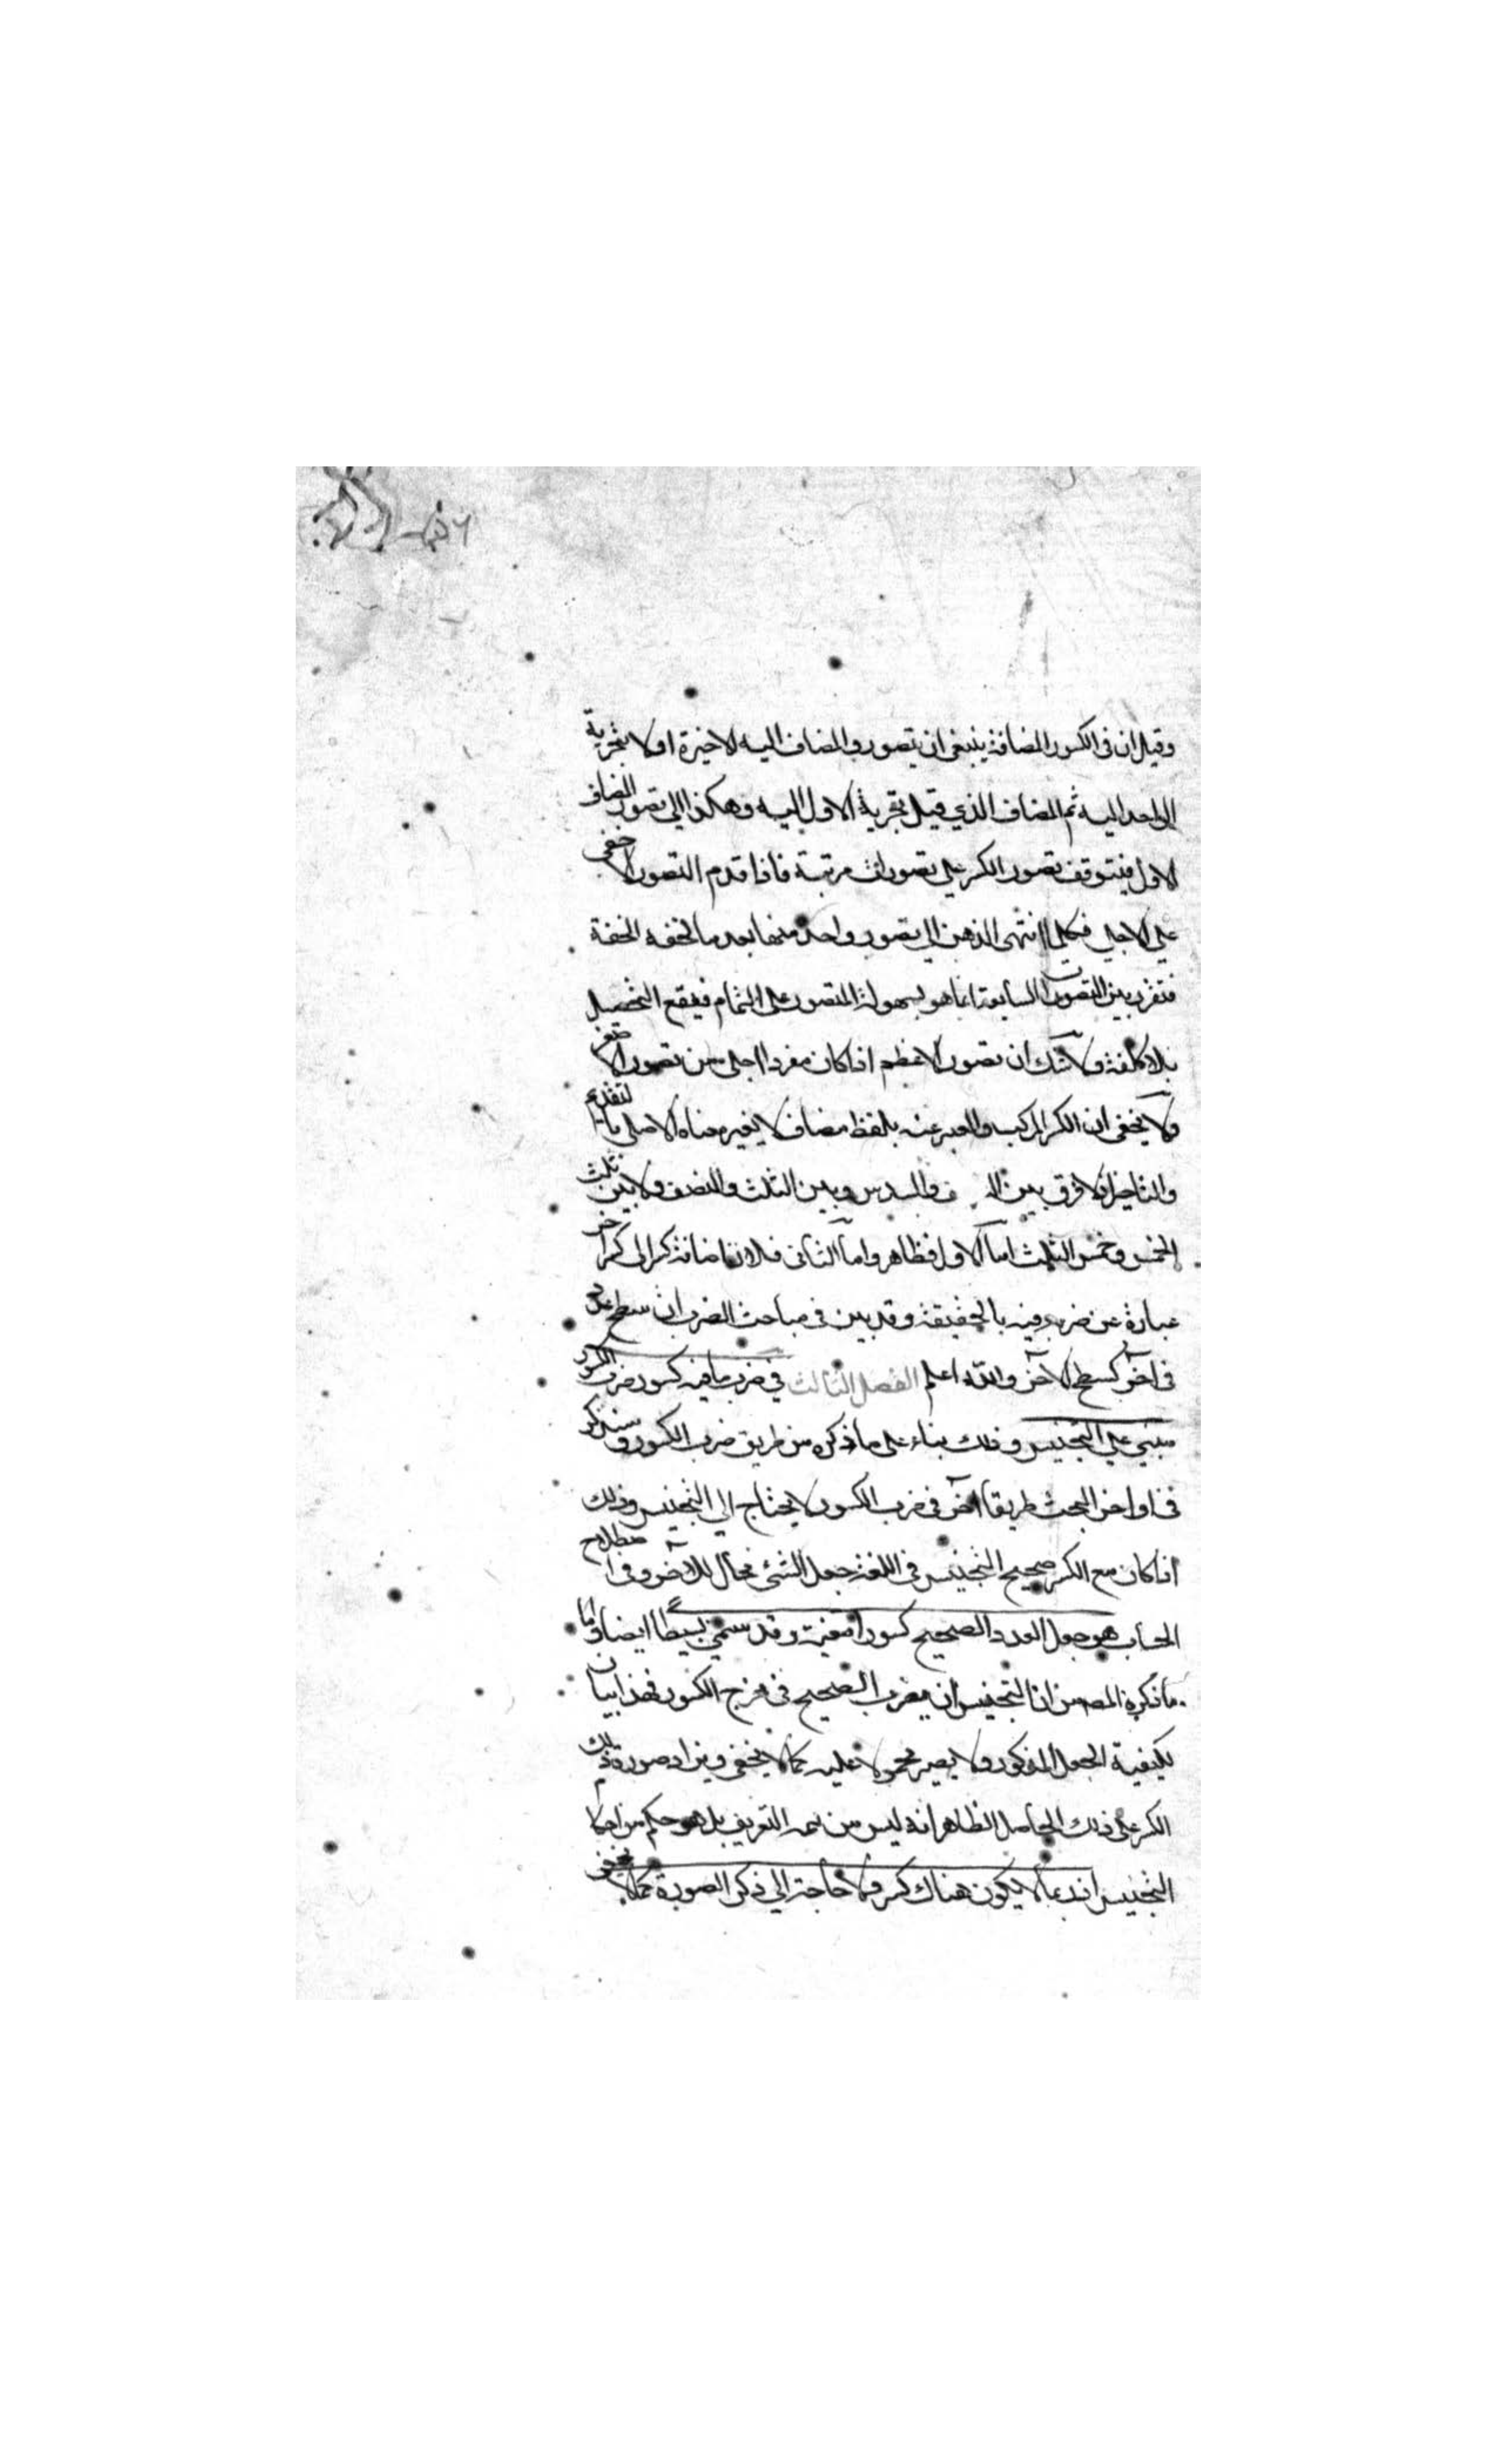 وقيل ان فى الكسور المضافة ينبغى ان يتصور المضاف اليه الاخيرة اولا بتجزية
الواحد اليه ثم المضاف الذي قبل بتجزية الاول اليه وهكذا الى تصور المضاف
الاول فيتوقف تصور الكسر على تصورات مرتبة فاذا قدم التصور الاخفى
على الاجلى فكلما انتهى الذهن الى تصور واحد منها بعد ما لحقه الخفة
بين التصورات السابعة انما هو بسهولة المتصور على التمام فيقع التحصيل
بلا كلفة ولا شك ان تصور الاعظم اذا كان مفردا اجلى من تصور الاصغر
ولا يخفى ان الكسر المركب والمعبر عنه بلفظ مضاف لا يغير معناه الاصلى بالتقديم
والتاخير فلا فرق بين والسدس وبين الثلث والنصف ولا بين ثلث
الخمس وخمس الثلث اما الاول فظاهر واما الثانى فلان اضافة كسر الى كسر اخر
عبارة عن ضربه فيه بالحقيقة وقد بين فى مباحث الضرب ان سطح عدد
فى اخر كسطح الاخر والله اعلم الفصل الثالث في ضرب ما فيه كسور ضرب الكسور
مبنى على التجنيس وذلك بناء على ما ذكره من طريق ضرب الكسور وسنذكر
فى اواخر البحث طريقا اخر فى ضرب الكسور لا يحتاج الى التجنيس وذلك
اذا كان مع الكسر صحيح التجنيس فى اللغة جعل الشئ للاخر وفى اصطلاح
الحساب هو جعل العدد الصحيح كسورا معينة وقد سمى بسيطا ايضا واما
ما ذكره المصه من ان التجنيس ان يضرب الصحيح فى مخرج الكسور فهذا بيان
لكيفية الجعل المذكور ولا يصير محمولا عليه كما لا يخفى ويزاد صورة ذلك
الكسر على ذلك الحاصل الظاهر انه ليس من التعريف بل هو حكم من احكام
التجنيس لا يكون هناك كسر فلا حاجة الى ذكر الصورة كما لا يخفى